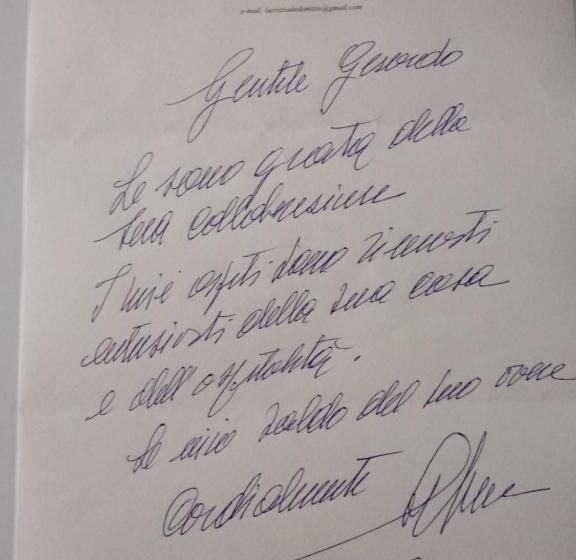 e-mail: lucreziadedomizio@gmail.com
Gentile Gerardo
Le sono grata della
sua collaborazione
I miei ospiti sono rimasti
entusiasti della sua casa
e dell'ospitalità.
Le invio saldo del suo
Cordialmente